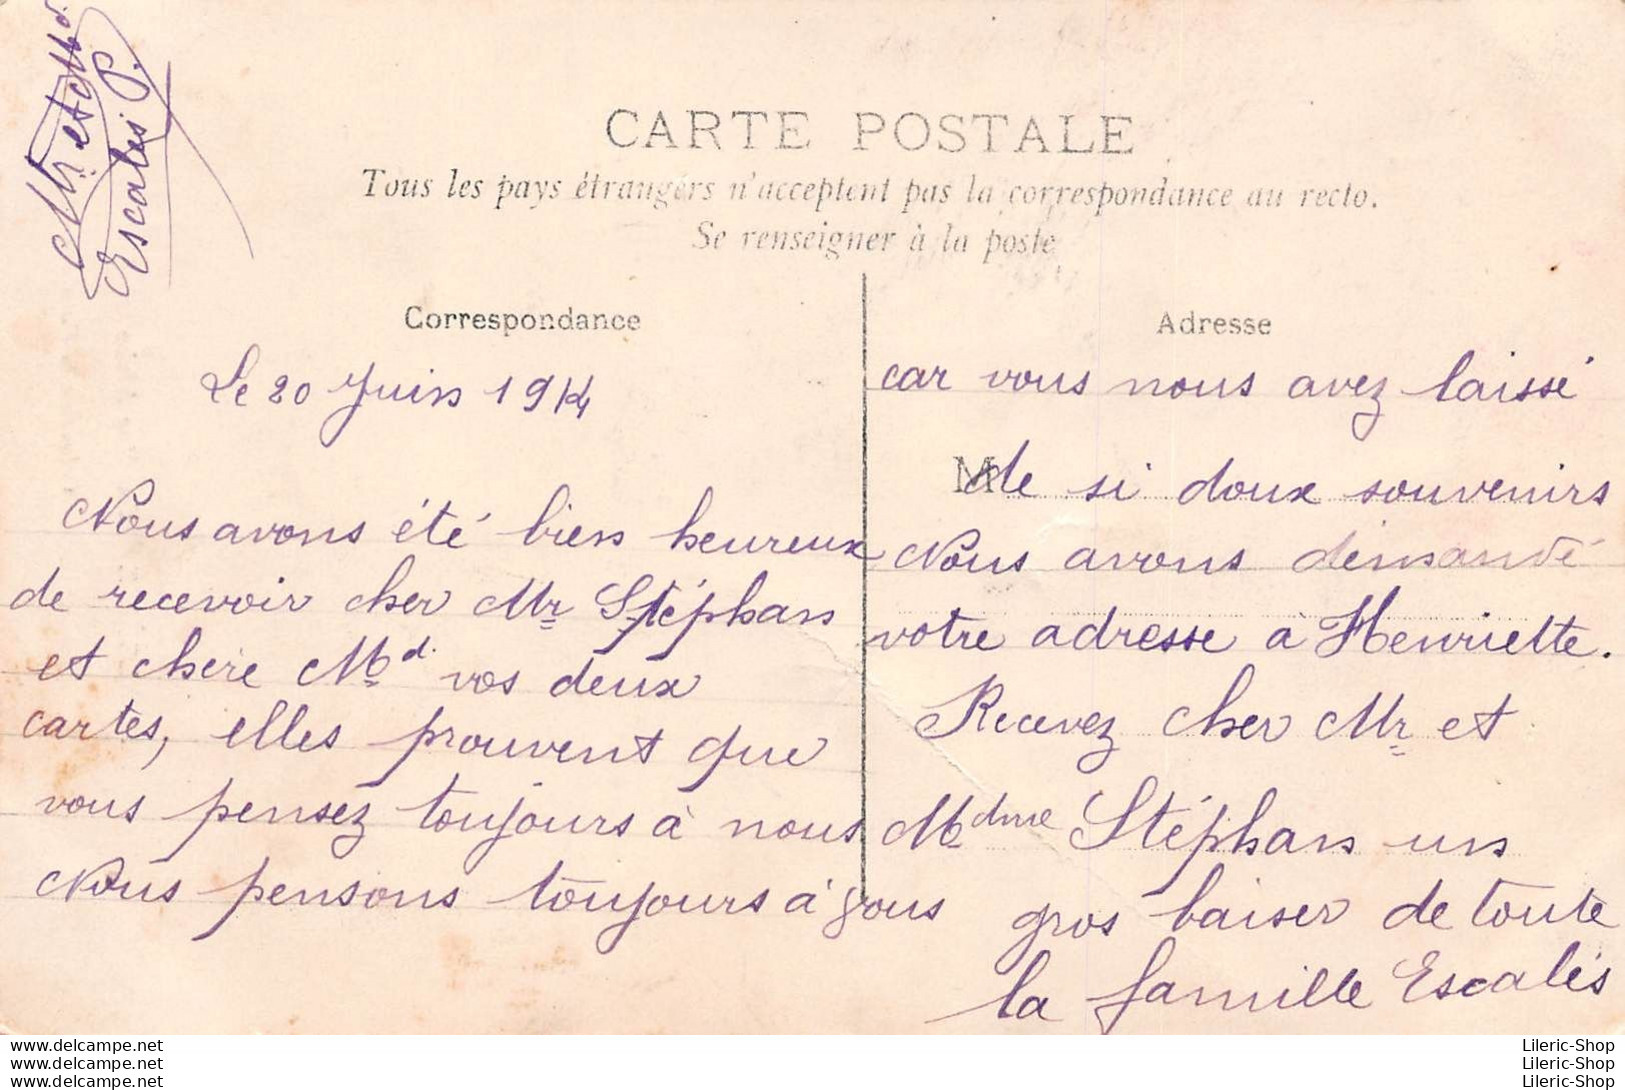 Mr et Md.
Escalès P.
CARTE POSTALE
Tous les pays étrangers n'acceptent pas la correspondance au recto.
Se renseigner à la poste
Correspondance
Le 20 Juin 1914
Nous avons été bien heureux
de recevoir cher Mr Stéphan
et chère Md. vos deux
cartes, elles prouvent que
vous pensez toujours à nous
Nous pensons toujours à vous
Adresse
car vous nous avez laissé
M
de si doux souvenirs
Nous avons demandé
votre adresse à Henriette.
Recevez cher Mr et
Mdme Stéphan un
gros baiser de toute
la famille Escalès
www.delcampe.net
www.delcampe.net
www.delcampe.net
Lileric-Shop
Lileric-Shop
Lileric-Shop